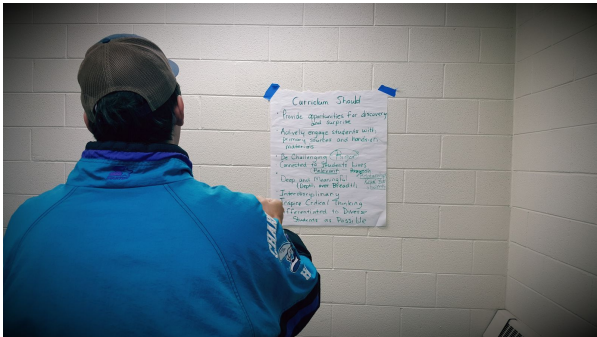 Curriculum Should
· Provide opportunities for discovery
and surprise
· Actively engage students with
primary sources and hands-on
materials
· Be Challenging
Connected to Students Lives
Relevant
· Deep and Meaningful
(Depth over Breadth)
Interdisciplinary
Inspire Critical Thinking
Differentiated to Diverse
Students as Possible
CHA